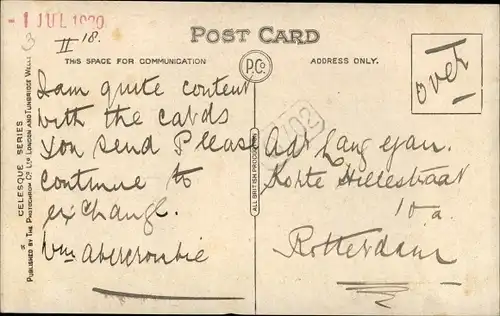 - 1 JUL 1920
3
II 18.
POST CARD
THIS SPACE FOR COMMUNICATION
P.Co.
ADDRESS ONLY.
over
I am quite content
with the cards
You send Please
continue to
exchange.
Wm Abercrombie
Korte Hillestraat
10a
Rotterdam
CELESQUE SERIES
PUBLISHED BY THE PHOTOCHROM CO. LTD. LONDON AND TUNBRIDGE WELLS
ALL BRITISH PRODUCTION